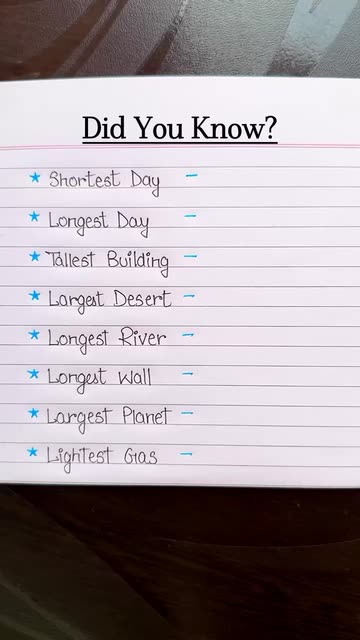 Did You Know?
★ Shortest Day –
★ Longest Day –
★ Tallest Building –
★ Largest Desert –
★ Longest River –
★ Longest Wall –
★ Largest Planet –
★ Lightest Gas –